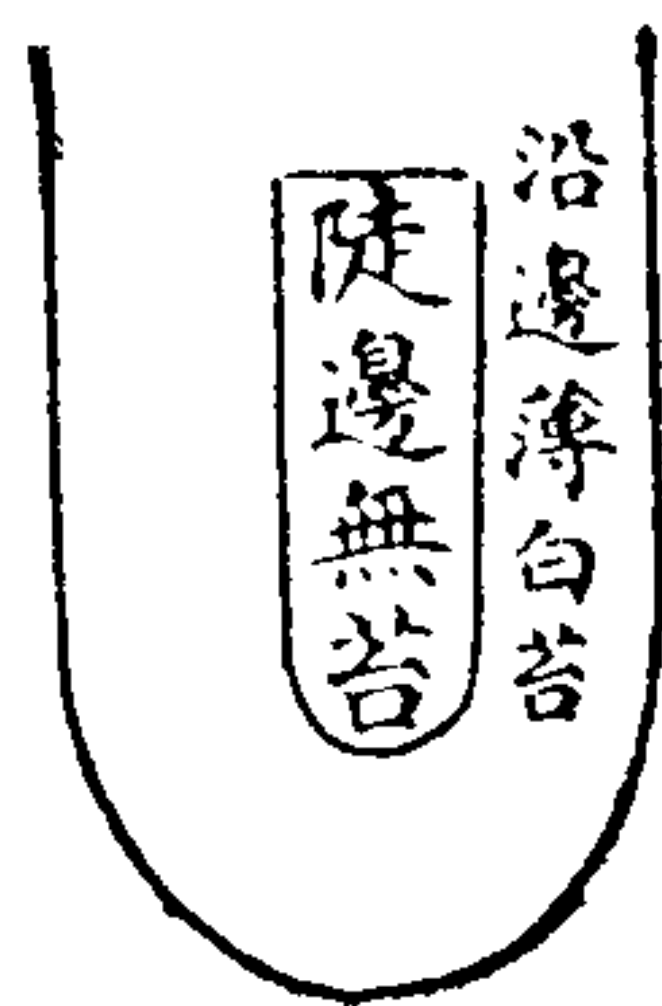 沿邊薄白苔
陡邊無苔